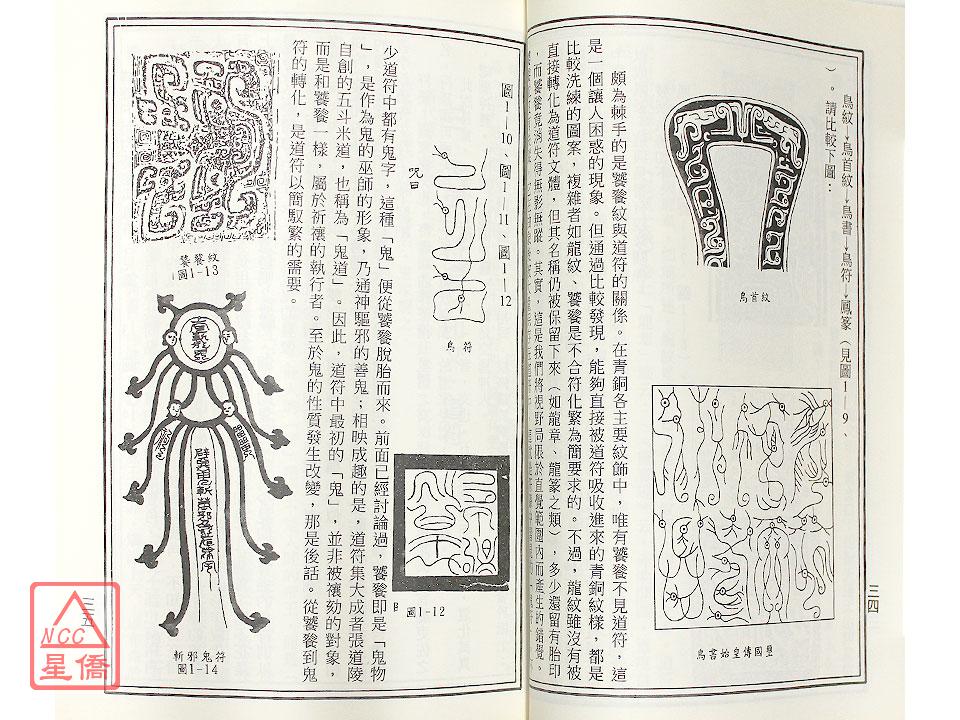 鳥紋→鳥首紋→鳥書→鳥符→鳳篆（見圖1—9、
圖1—10、圖1—11、圖1—12
）。請比較下圖：
鳥首紋
鳥書始皇傳國璽
頗為棘手的是饕餮紋與道符的關係。在青銅各主要紋飾中，唯有饕餮不見道符，這
是一個讓人困惑的現象。但通過比較發現，能夠直接被道符吸收進來的青銅紋樣，都是
比較洗練的圖案，複雜者如龍紋、饕餮是不合符化繁為簡要求的。不過，龍紋雖沒有被
直接轉化為道符文體，但其名稱仍被保留下來（如龍章、龍篆之類），多少還留有胎印
，而饕餮竟消失得無影無蹤。其實，這是我們將視野局限於直覺範圍內而產生的錯覺。
三四
咒曰
鳥符
圖1-12
少道符中都有鬼字，這種「鬼」便從饕餮脫胎而來。前面已經討論過，饕餮即是「鬼物
」，是作為鬼的巫師的形象，乃通神驅邪的善鬼；相映成趣的是，道符集大成者張道陵
自創的五斗米道，也稱為「鬼道」。因此，道符中最初的「鬼」，並非被禳劾的對象，
而是和饕餮一樣，屬於祈禳的執行者。至於鬼的性質發生改變，那是後話。從饕餮到鬼
符的轉化，是道符以簡馭繁的需要。
饕餮紋
圖1-13
斬邪鬼符
圖1-14
三五
NCC
星僑